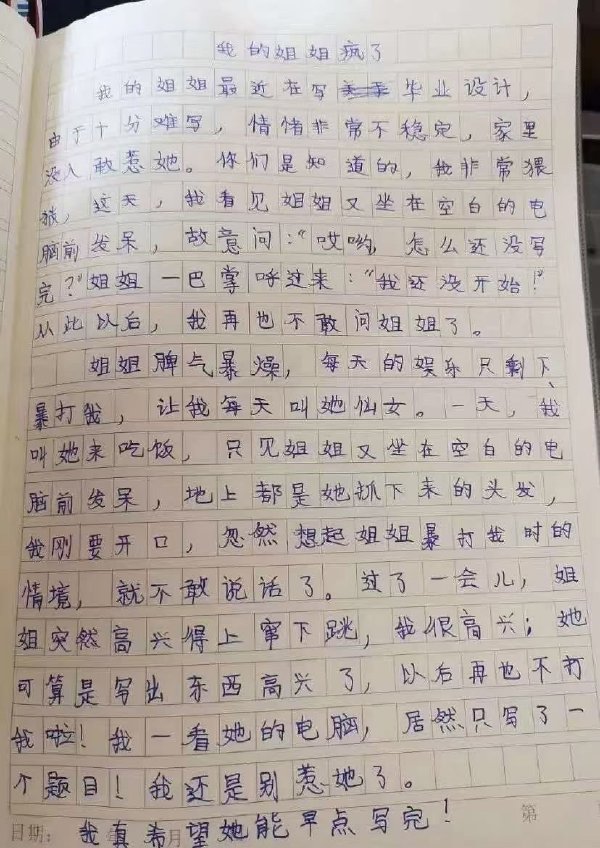 我的姐姐疯了
我的姐姐最近在写毕业设计,
由于十分难写,情绪非常不稳定,家里
没人敢惹她。你们是知道的,我非常猥
猥,这天,我看见姐姐又坐在空白的电
脑前发呆,故意问:“哎哟,怎么还没写
完?”姐姐一巴掌呼过来:“我还没开始!”
从此以后,我再也不敢问姐姐了。
姐姐脾气暴燥,每天的娱乐只剩下
暴打我,让我每天叫她仙女。一天,我
叫她来吃饭,只见姐姐又坐在空白的电
脑前发呆,地上都是她抓下来的头发,
我刚要开口,忽然想起姐姐暴打我时的
情境,就不敢说话了。过了一会儿,姐
姐突然高兴得上窜下跳,我很高兴;她
可算是写出东西高兴了,以后再也不打
我啦!我一看她的电脑,居然只写了一
个题目!我还是别惹她了。
我真希望她能早点写完!
日期: 年 月 第